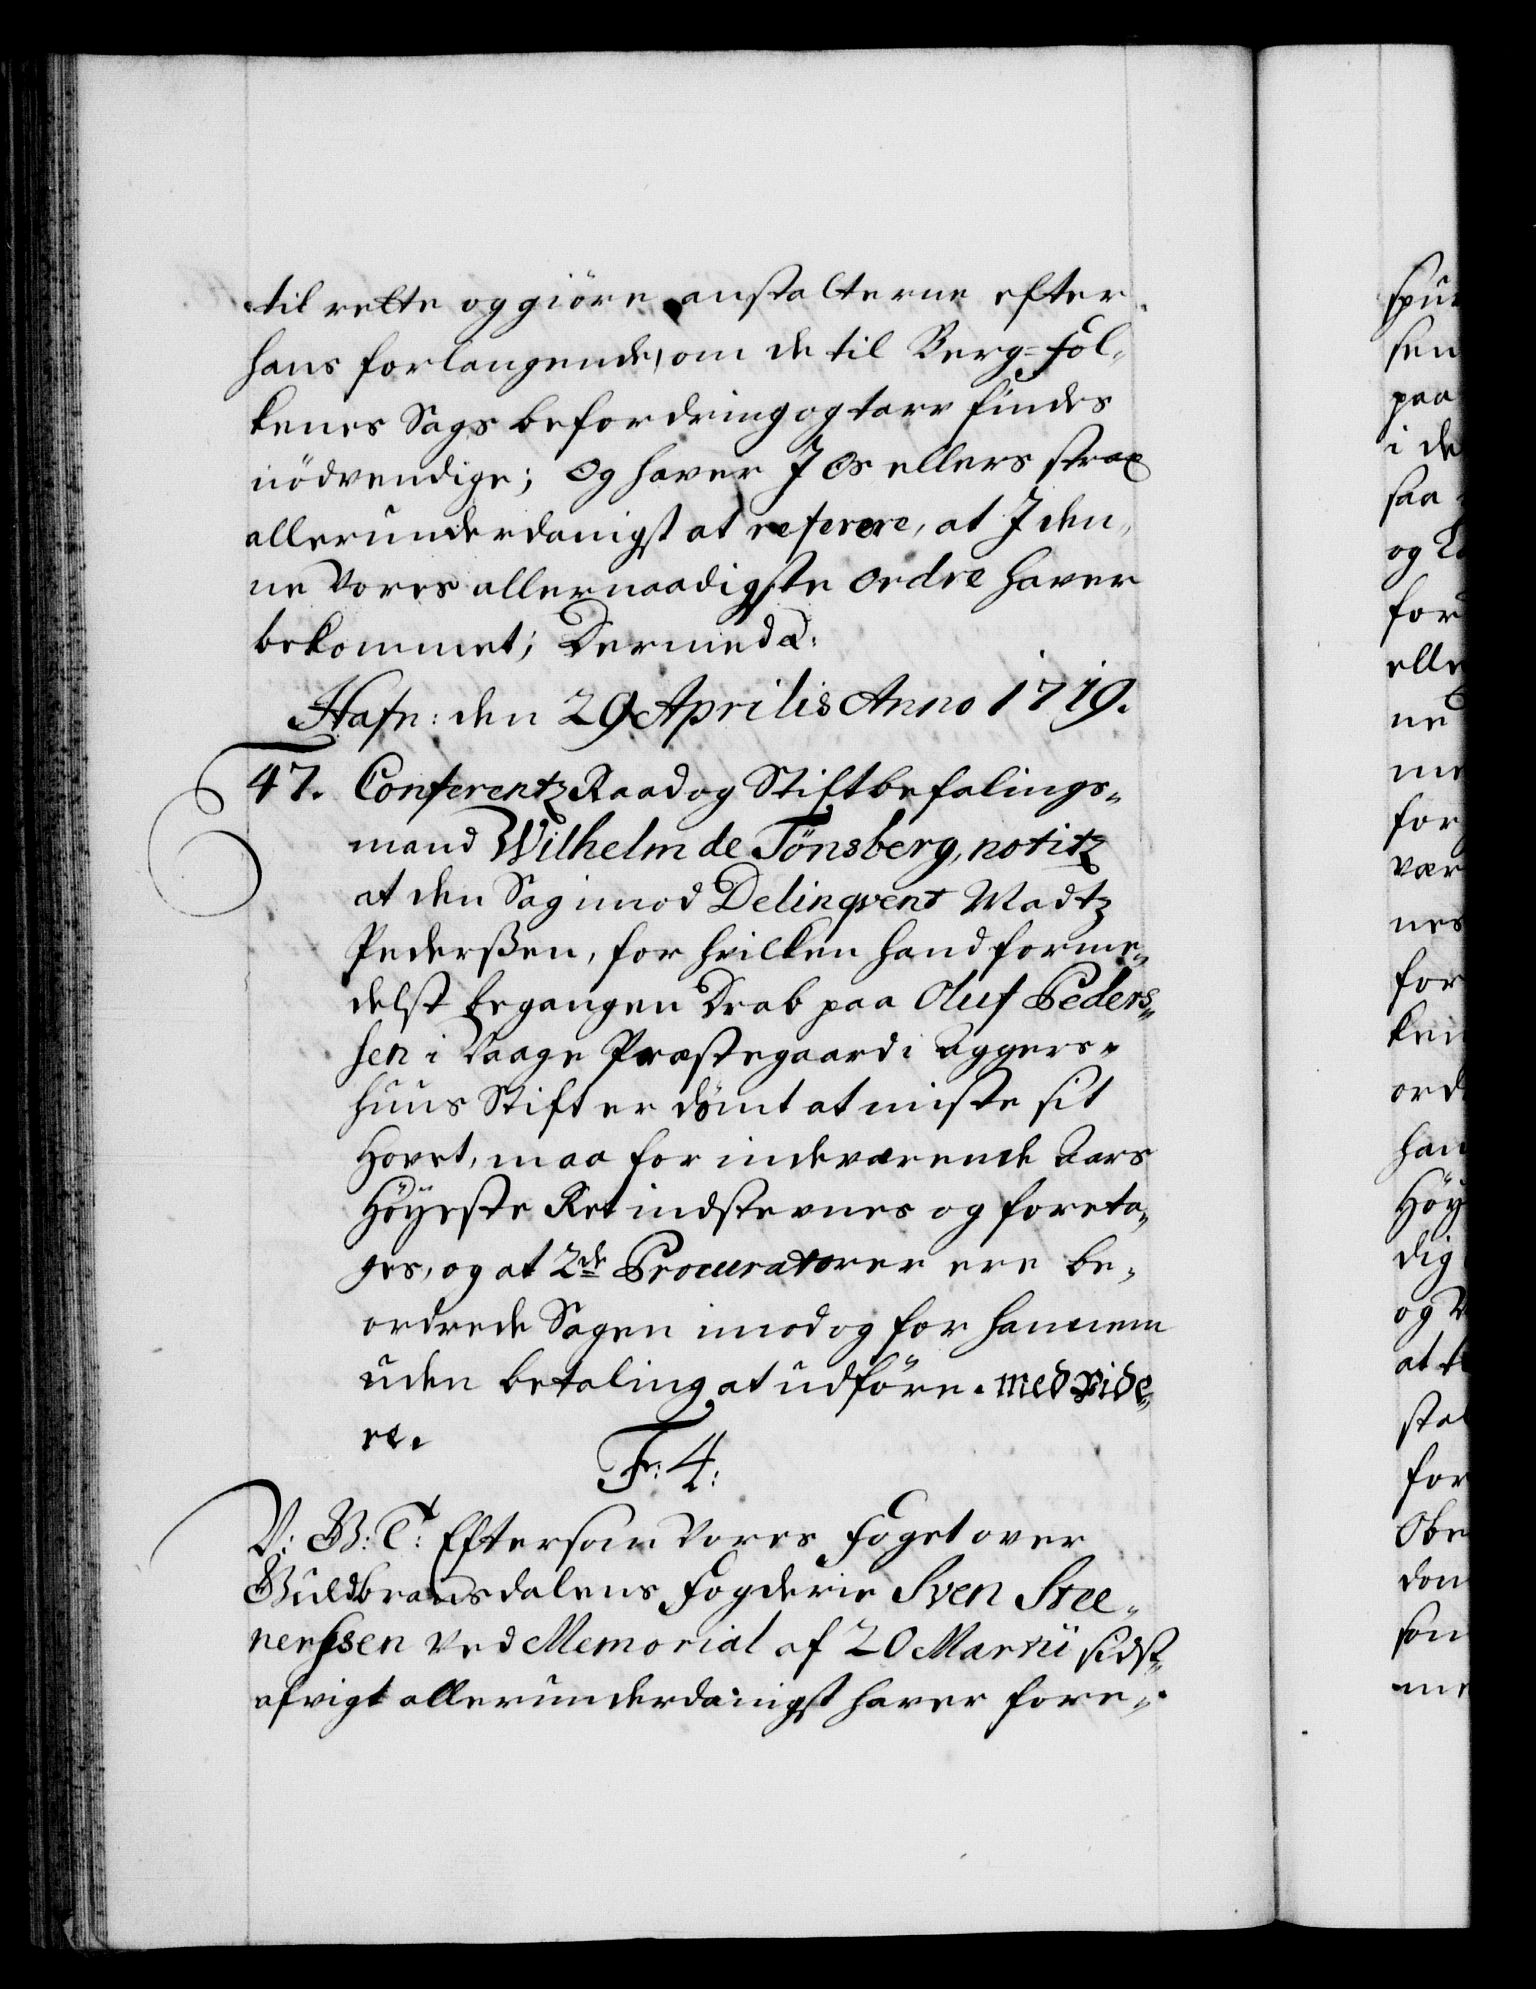 til rette og giöre anstalterne efter
hans forlangende, om de til Berg=Fol-
kenes Sags befordring og tarv findes
nödvendige; og haver I os ellers strax
allerunderdanigst at referere, at I den-
ne vores allernaadigste ordre haver
bekommet; Dermed &:
Hafn: den 29 Aprilis Anno 1719.
47. Conferentz Raad og Stiftbefalings-
mand Wilhelm de Tönsberg, notitz
at den Sag imod Delinqvent Madtz
Pederßen, for hvilken hand forme-
delst begangen Drab paa Oluf Peders-
sen i Vaage Præstegaard i Aggers-
huus Stift er dömt at miste sit
Hovet, maa for indeværende Aars
Höyeste Ret indstevnes og foreta-
ges, og at 2de Procuratorer ere be-
ordrede Sagen imod og for hannem
uden betaling at udföre. med vide-
re.
Fr: 4:
V: G: T: Eftersom Vores Foget over
Guldbransdalens Fogderie Sven Stee-
nerssen ved Memorial af 20 Martii sidst-
afvigt allerunderdanigst haver fore-
spur
sen
paa
i de
saa
og
for
elle
ne
me
for
vær
nes
for
ken
ord
han
Höy
dig
og
at
stal
for
Obe
dom
som
me